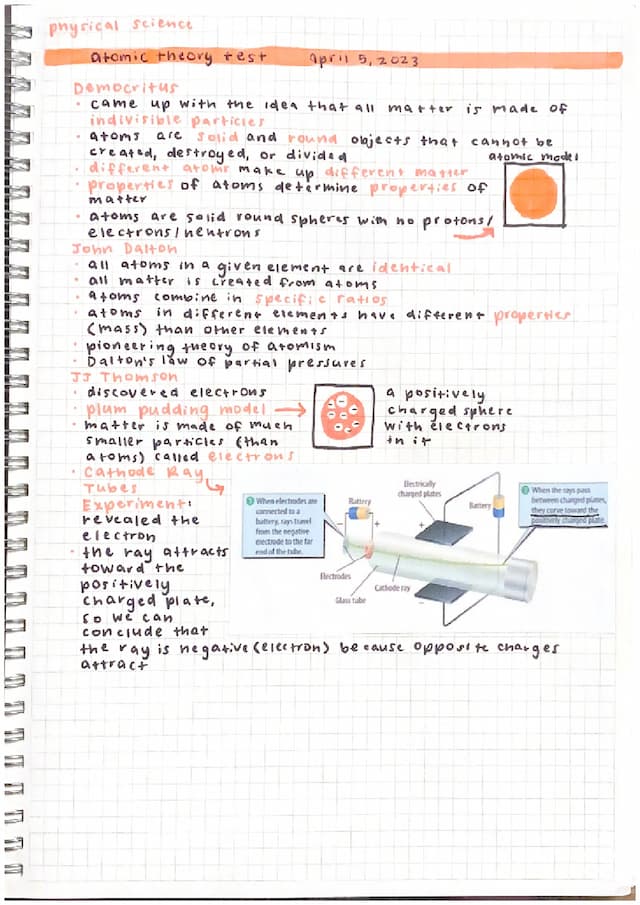 physical science
atomic theory test april 5, 2023
Democritus
• came up with the idea that all matter is made of
indivisible particles
• atoms are solid and round objects that cannot be
created, destroyed, or divided
atomic model
• different atoms make up different matter
• properties of atoms determine properties of
matter
• atoms are solid round spheres with no protons/
electrons/neutrons
John Dalton
• all atoms in a given element are identical
• all matter is created from atoms
• atoms combine in specific ratios
• atoms in different elements have different properties
(mass) than other elements
• pioneering theory of atomism
• Dalton's law of partial pressures
JJ Thomson
• discovered electrons
• plum pudding model →
• matter is made of much
smaller particles (than
atoms) called electrons
a positively
charged sphere
with electrons
in it
• Cathode Ray
Tubes
Experiment:
revealed the
electron
• the ray attracts
toward the
positively
charged plate,
so we can
conclude that
the ray is negative (electron) because opposite charges
attract
1 When electrodes are
connected to a
battery, rays travel
from the negative
electrode to the far
end of the tube.
Battery
− +
Electrically
charged plates
+
Battery
2 When the rays pass
between charged plates,
they curve toward the
positively charged plate.
Electrodes
Glass tube
Cathode ray
−